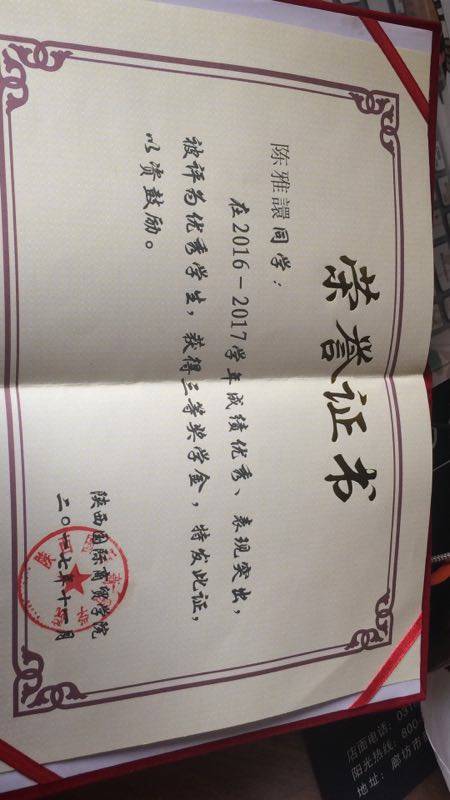 荣誉证书
陈雅譞同学：
在2016-2017学年成绩优秀、表现突出，
被评为优秀学生，获得三等奖学金，特发此证，
以资鼓励。
陕西国际商贸学院
二〇一七年十一月
店面电话：031
阳光热线：800-
地址：廊坊市